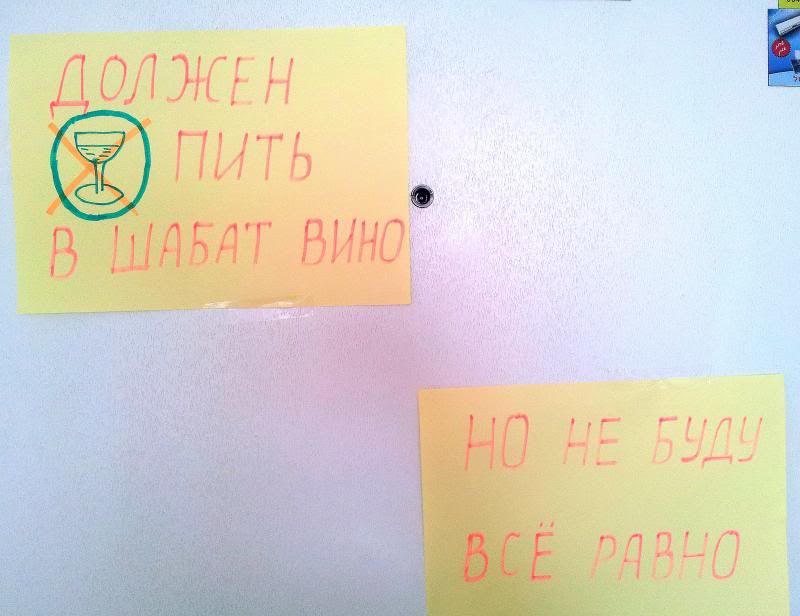 ДОЛЖЕН
ПИТЬ
В ШАБАТ ВИНО
НО НЕ БУДУ
ВСЁ РАВНО